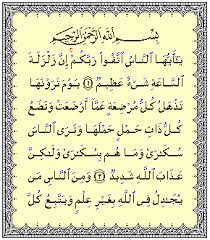 بِسْمِ ٱللَّهِ ٱلرَّحْمَٰنِ ٱلرَّحِيمِ
يَٰٓأَيُّهَا ٱلنَّاسُ ٱتَّقُوا۟ رَبَّكُمْ إِنَّ زَلْزَلَةَ
ٱلسَّاعَةِ شَىْءٌ عَظِيمٌ ١ يَوْمَ تَرَوْنَهَا
تَذْهَلُ كُلُّ مُرْضِعَةٍ عَمَّآ أَرْضَعَتْ وَتَضَعُ
كُلُّ ذَاتِ حَمْلٍ حَمْلَهَا وَتَرَى ٱلنَّاسَ
سُكَٰرَىٰ وَمَا هُم بِسُكَٰرَىٰ وَلَٰكِنَّ
عَذَابَ ٱللَّهِ شَدِيدٌ ٢ وَمِنَ ٱلنَّاسِ مَن
يُجَٰدِلُ فِى ٱللَّهِ بِغَيْرِ عِلْمٍ وَيَتَّبِعُ كُلَّ